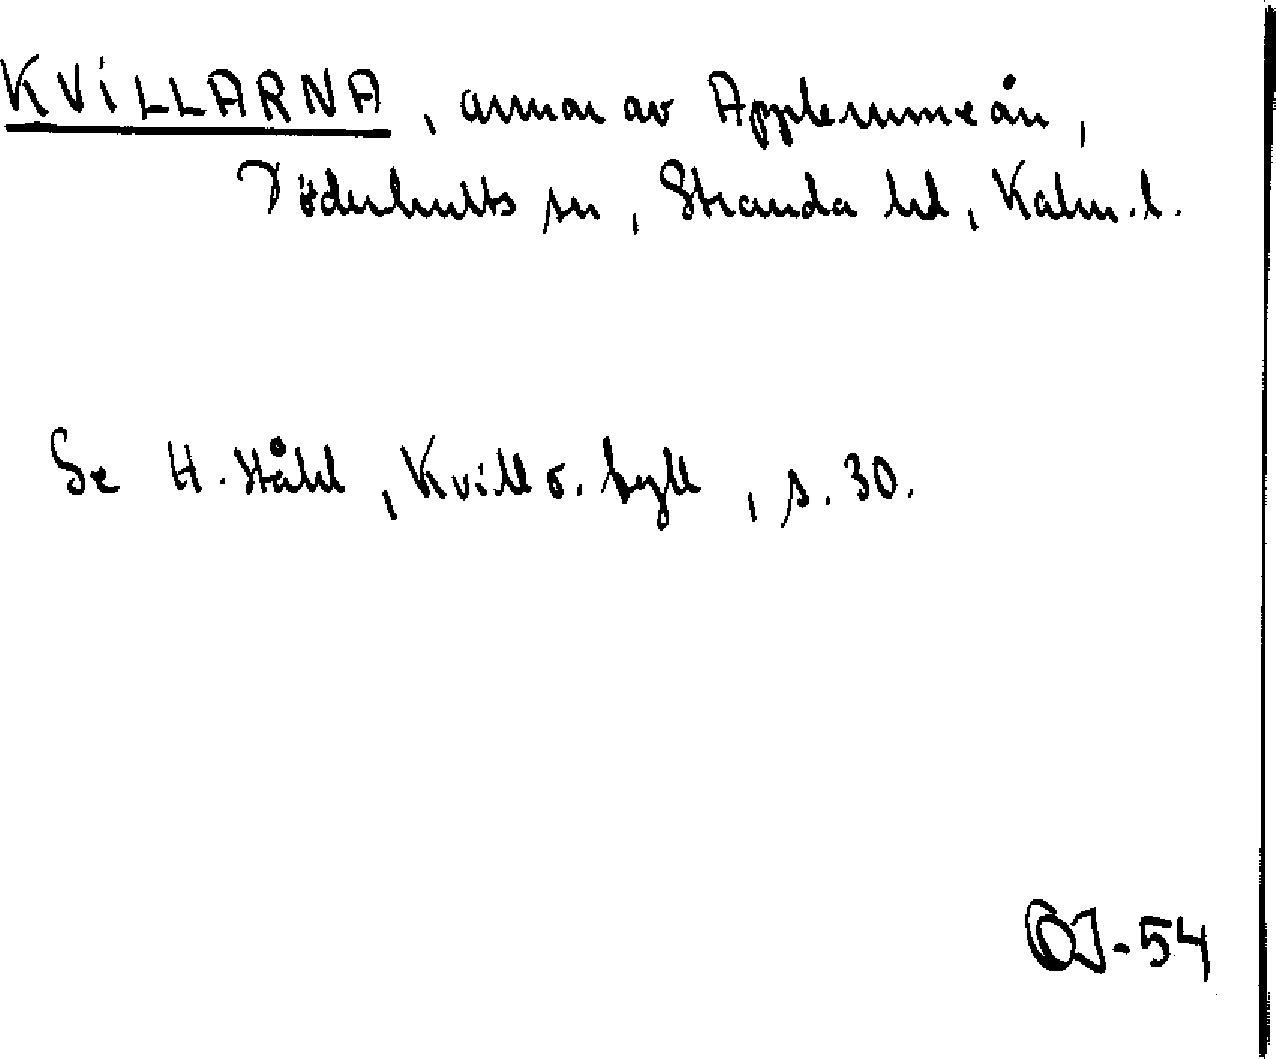 KVILLARNA, armar av Applerumeån,
Döderhults sn, Stranda hd, Kalm. l.
Se H. Ståhl, Kvill o. tyll, s. 30.
OJ-54